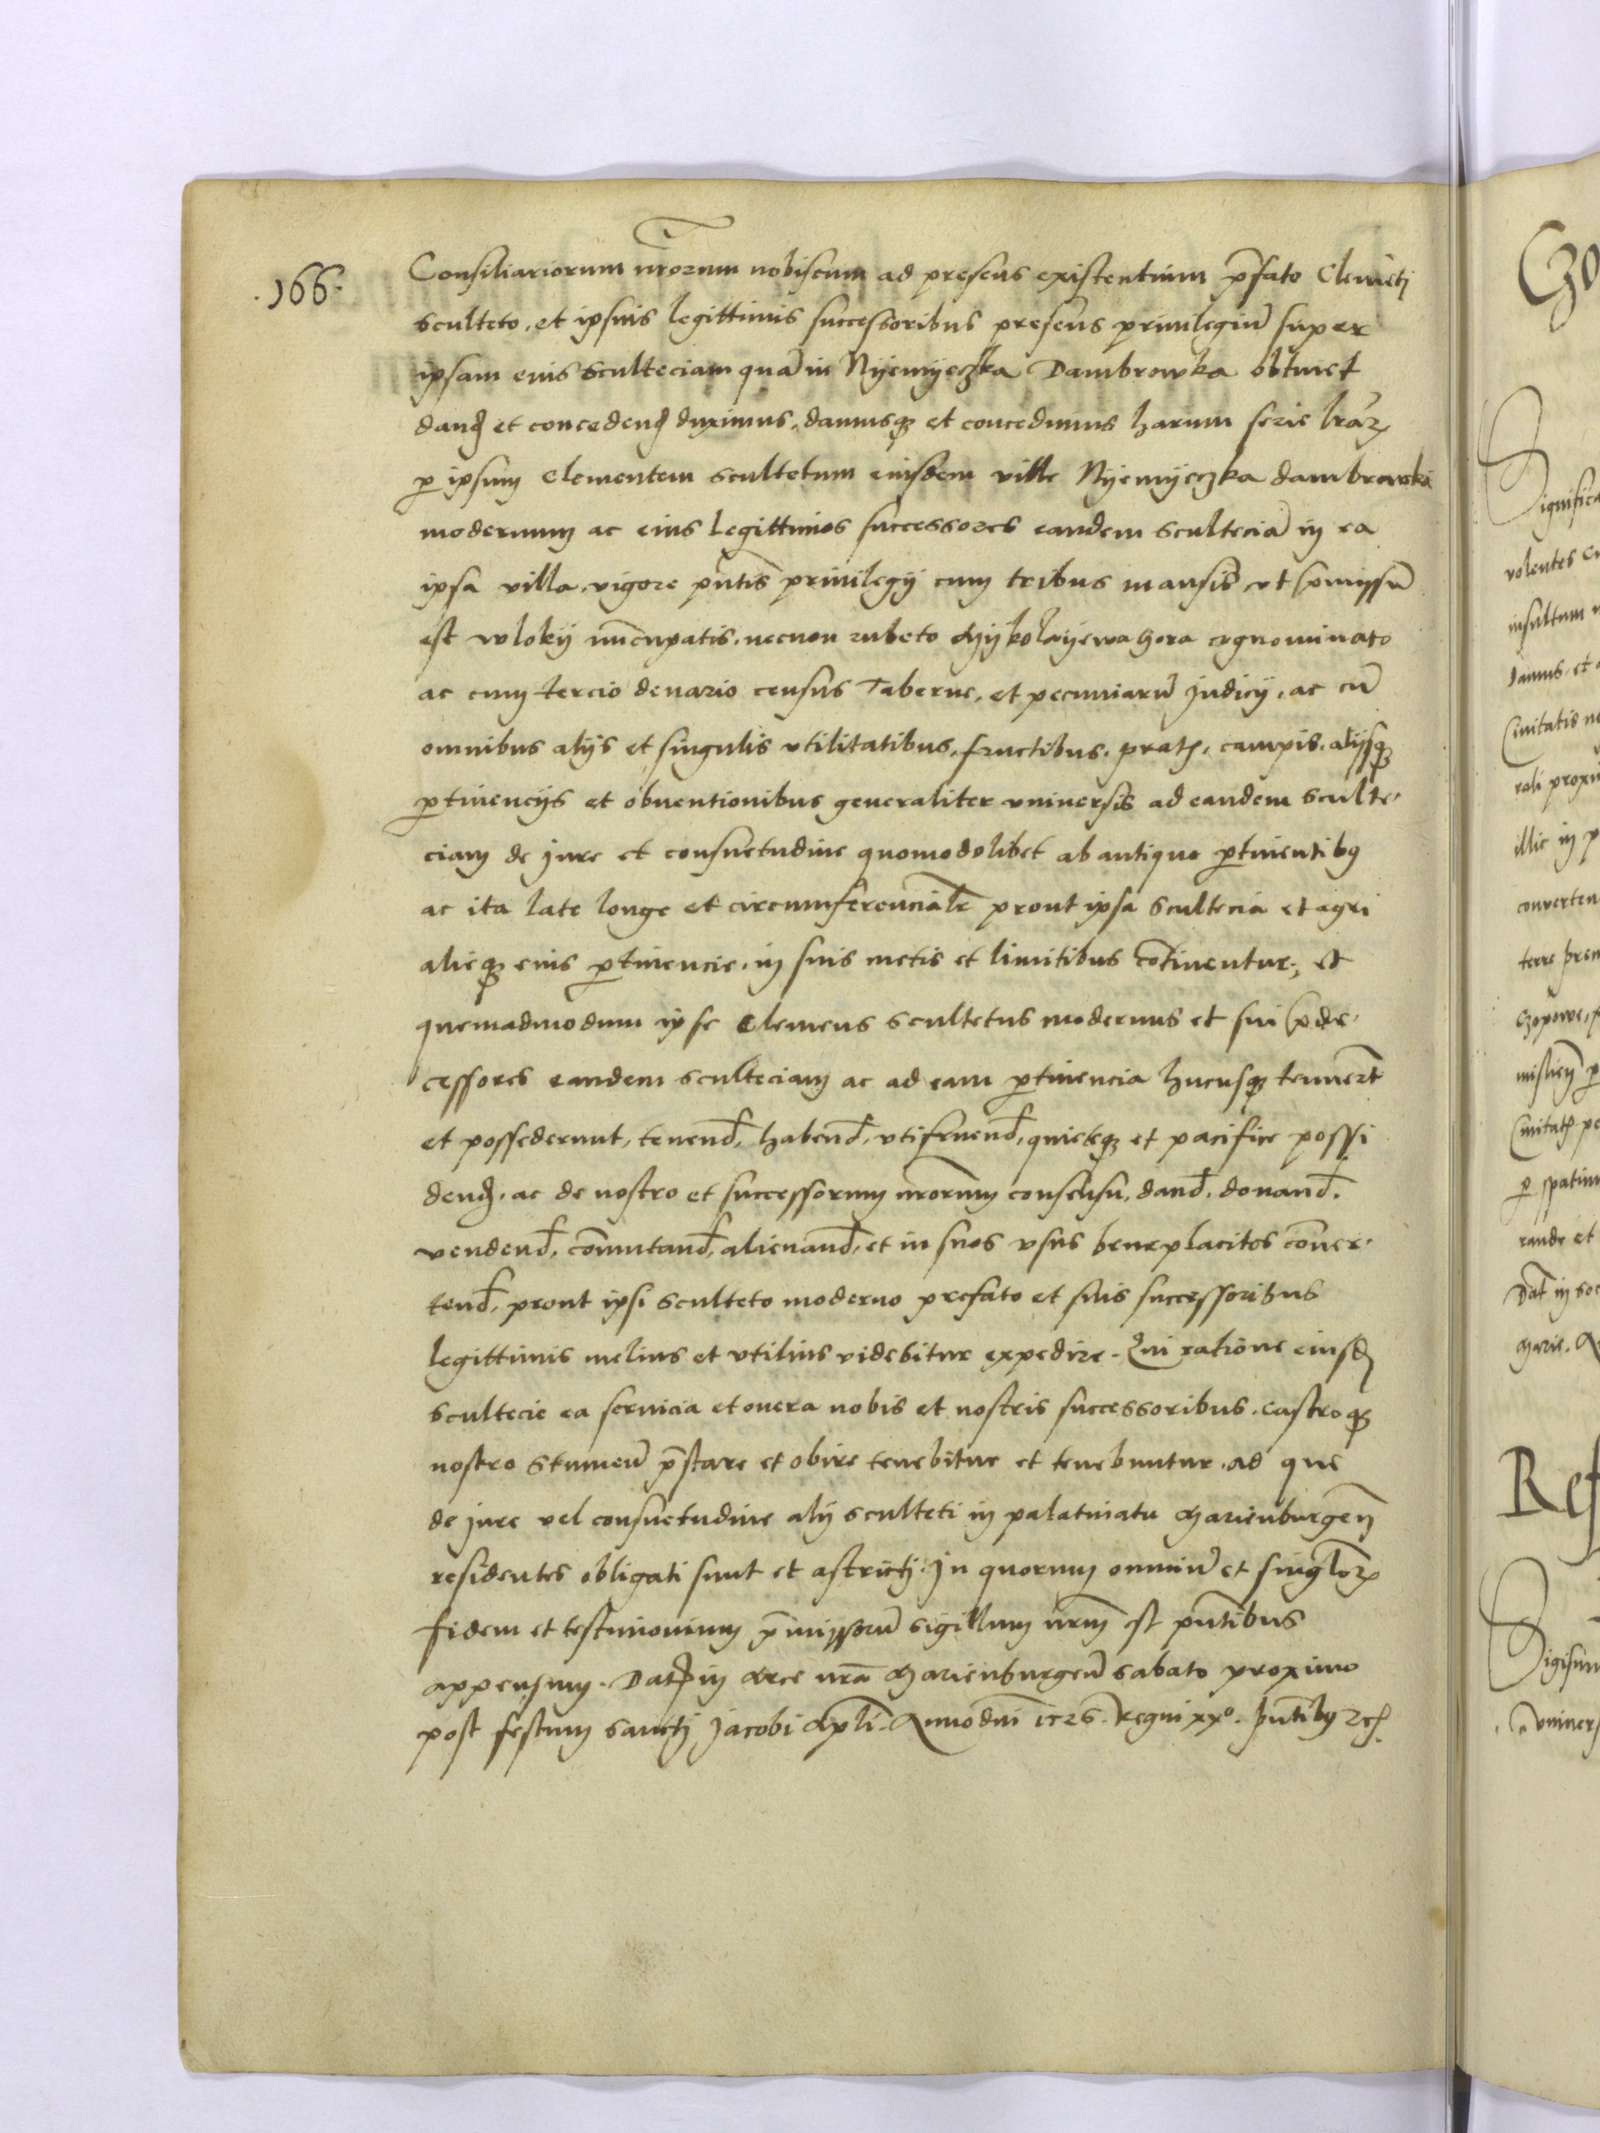 .166.
Consiliariorum nrorum nobiscum ad presens existentium pfato Clemeti
sculteto, et ipsius legittimis successoribus presens priuilegiu super
ipsam eius sculteciam qua in Nyemyeczka Dambrowka obtinet
dand et concedend duximus, damusq et concedimus harum serie lrar
p ipsum Clementem scultetum eiusdem ville Nyemyeczka dambrowka
modernum ac eius legittimos successores eandem scultecia in ea
ipsa villa, vigore pntis priuilegij cum tribus mansis vt pmissu
est wloky nucupatis, necnon rubeto Mykolayewa Gora cognominato
ac cum tercio denario census Taberne, et pecuniaru Judicij, ac cu
omnibus alijs et singulis vtilitatibus, fructibus, prat, campis, alijsq
ptinencijs et obuentionibus generaliter vniuersis ad eandem sculte,
ciam de Jure et consuetudine quomodolibet ab antiquo ptinentibus
ac ita late longe et circumferencialr prout ipsa scultecia et agri
alieq eius ptinencie, in suis metis et limitibus cotinentur, et
quemadmodum ipse Clemens scultetus modernus et sui pde,
cessores eandem sculteciam ac ad eam ptinencia hucusq tenuert
et possederunt, tenend, habend, vtifruend, quieteq et pacifice possi
dend, ac de nostro et successorum nrorum consensu, dand, donand,
vendend, comutand, alienand, et in suos vsus beneplacitos couer,
tend, prout ipsi sculteto moderno prefato et suis successoribus
legittimis melius et vtilius videbitur expedire. Qui ratione eiusd
scultecie ea seruicia et onera nobis et nostris successoribus, castroq
nostro Stumen pstare et obire tenebitur et tenebuntur, ad que
de Jure vel consuetudine alij sculteti in palatinatu Marienburgen
residentes obligati sunt et astricti. In quorum omniu et singlor
fidem et testimonium pmissoru sigillum nrm est pntibus
appensum. Dat in Arce nra Marienburgen sabato proximo
post festum sancti Jacobi Apli. Anno dni 1526. Regni xxo. pntibus rc.